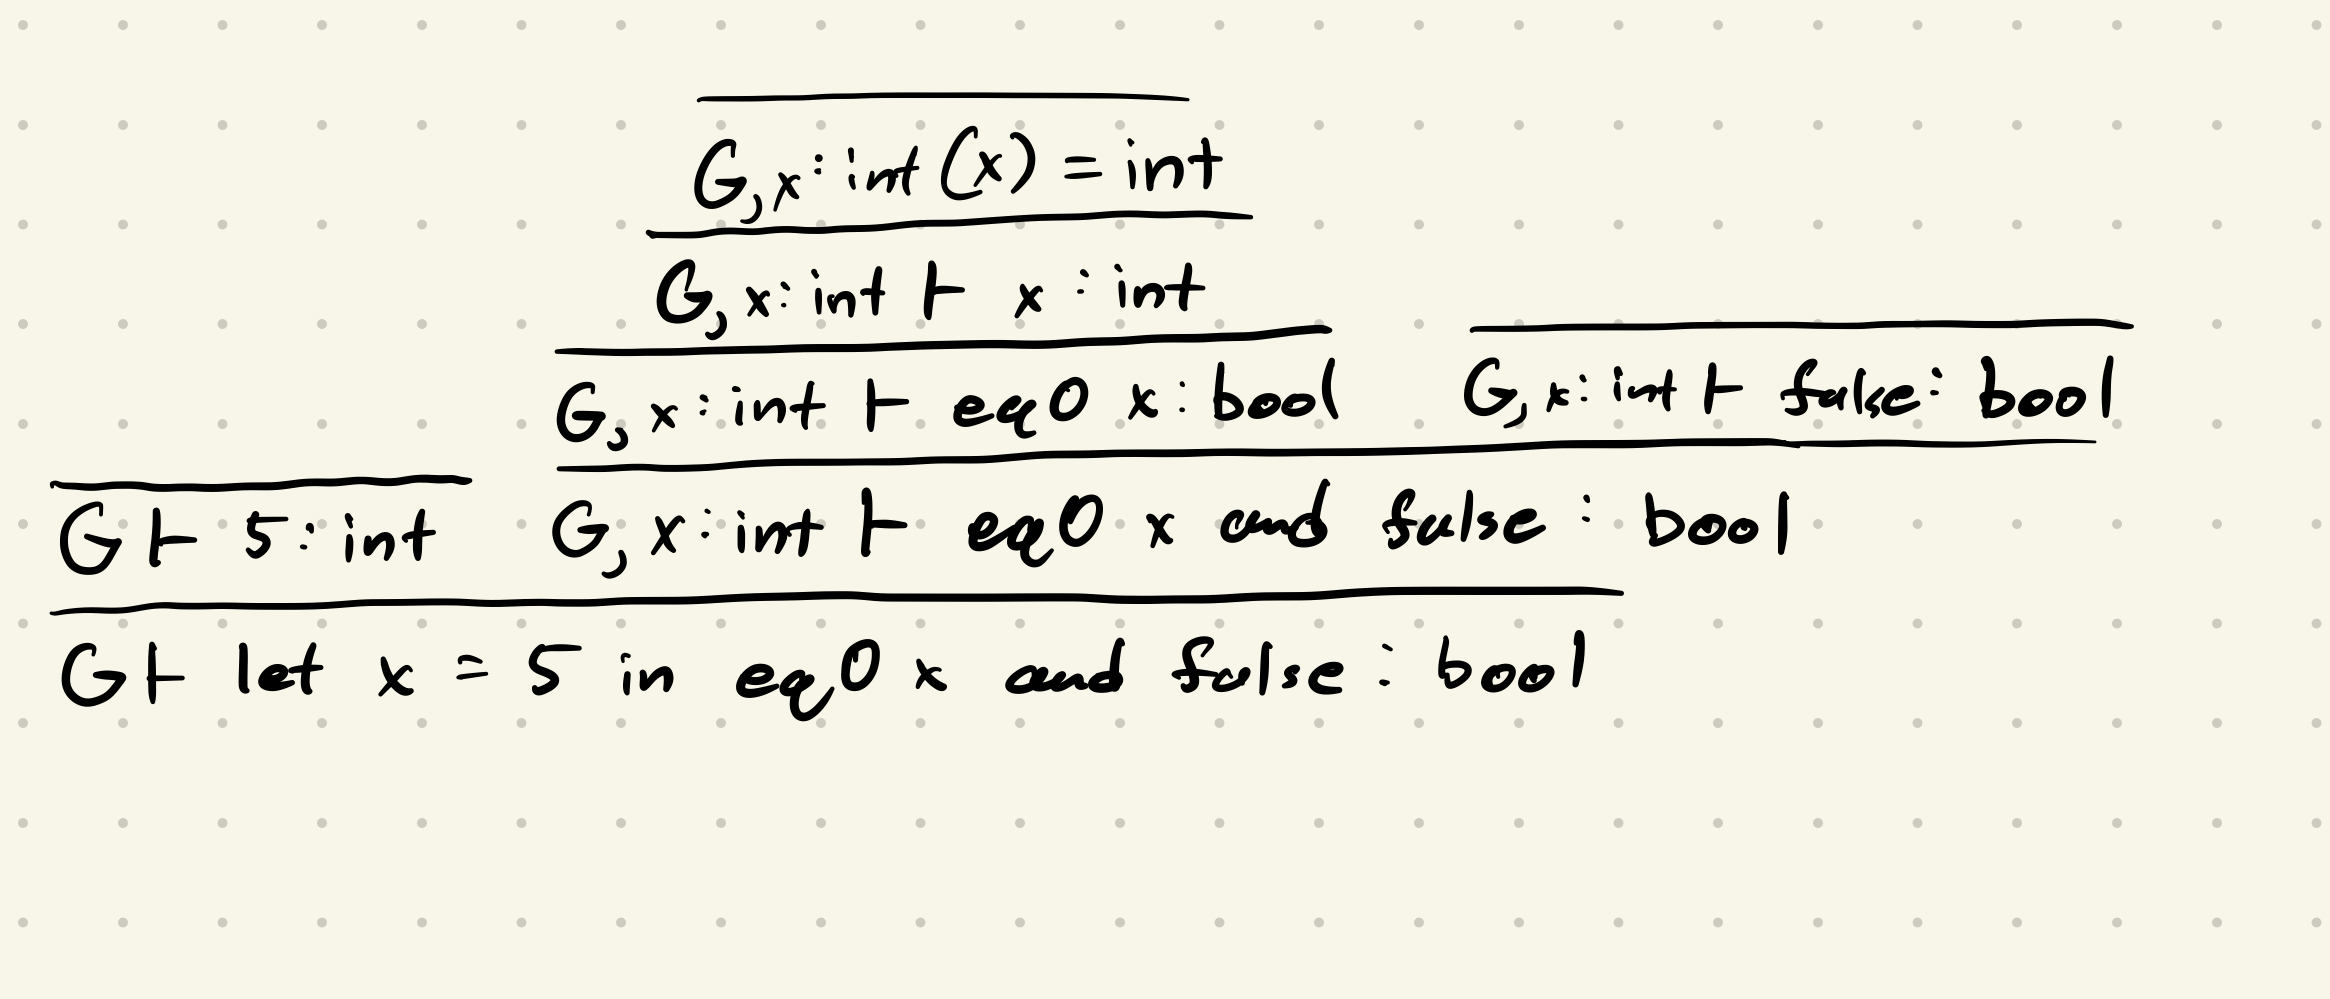 G,x:int(x) = int
G,x:int ⊢ x:int
G,x:int ⊢ eq0 x:bool G,x:int ⊢ false:bool
G ⊢ 5:int G,x:int ⊢ eq0 x and false:bool
G ⊢ let x = 5 in eq0 x and false:bool